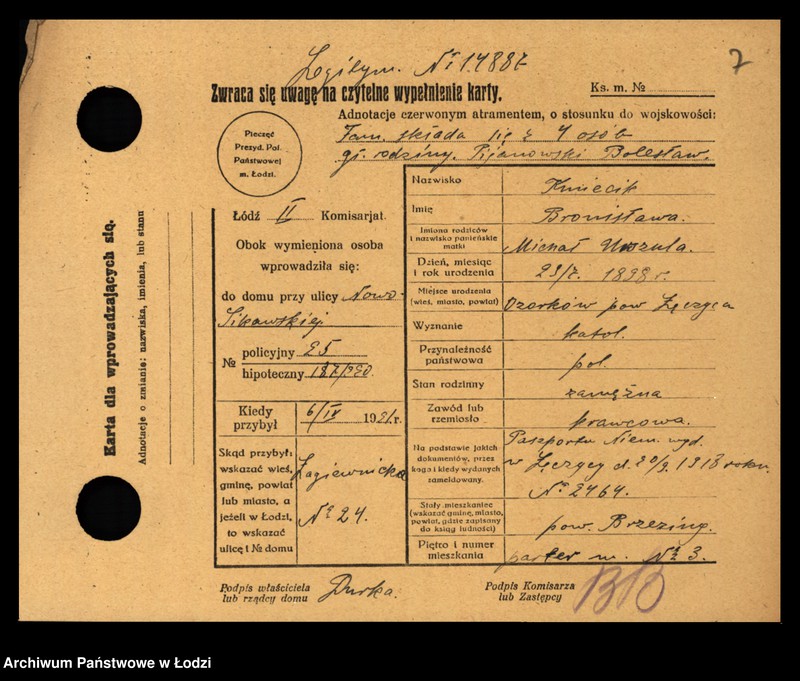 7
Legitym. Nr 14887
Zwraca się uwagę na czytelne wypełnienie karty.
Ks. m. №
Adnotacje czerwonym atramentem, o stosunku do wojskowości:
Fam. składa się z 4 osób
gł. rodziny. Pijanowski Bolesław.
Pieczęć
Prezyd. Pol.
Państwowej
m. Łodzi.
Łódź II Komisarjat.
Obok wymieniona osoba
wprowadziła się:
do domu przy ulicy Nowo-
Sikawskiej
№ policyjny 25
hipoteczny
Kiedy przybył 6/IV 1921 r.
Skąd przybył:
wskazać wieś,
gminę, powiat
lub miasto, a
jeżeli w Łodzi,
to wskazać
ulicę i № domu
Łagiewnicka
№ 24.
Nazwisko Kmiecik
Imię Bronisława.
Imiona rodziców
i nazwisko panieńskie
matki
Michał Urszula.
Dzień, miesiąc
i rok urodzenia
1898 r.
Miejsce urodzenia
(wieś, miasto, powiat)
Ozorków pow Łęczyca
Wyznanie katol.
Przynależność
państwowa
pol.
Stan rodzinny zamężna
Zawód lub
rzemiosło
krawcowa.
Na podstawie jakich
dokumentów, przez
kogo i kiedy wydanych
zameldowany.
Paszportu Niem. wyd.
w Łęczycy d. 20/9. 1918 roku.
№ 2464.
Stały mieszkaniec
(wskazać gminę, miasto,
powiat, gdzie zapisany
do ksiąg ludności)
pow. Brzeziny.
Piętro i numer
mieszkania
parter m. № 3.
Podpis właściciela
lub rządcy domu
Durka.
Podpis Komisarza
lub Zastępcy
Karta dla wprowadzających się.
Adnotacje o zmianie: nazwiska, imienia, lub stanu
Archiwum Państwowe w Łodzi